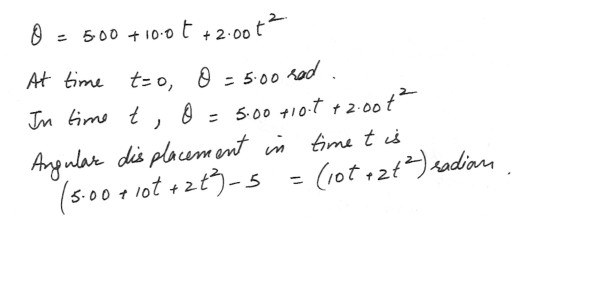 θ = 5.00 + 10.0 t + 2.00 t²
At time t=0, θ = 5.00 rad.
In time t, θ = 5.00 + 10.t + 2.00 t²
Angular displacement in time t is
(5.00 + 10t + 2t²) - 5 = (10t + 2t²) radian.